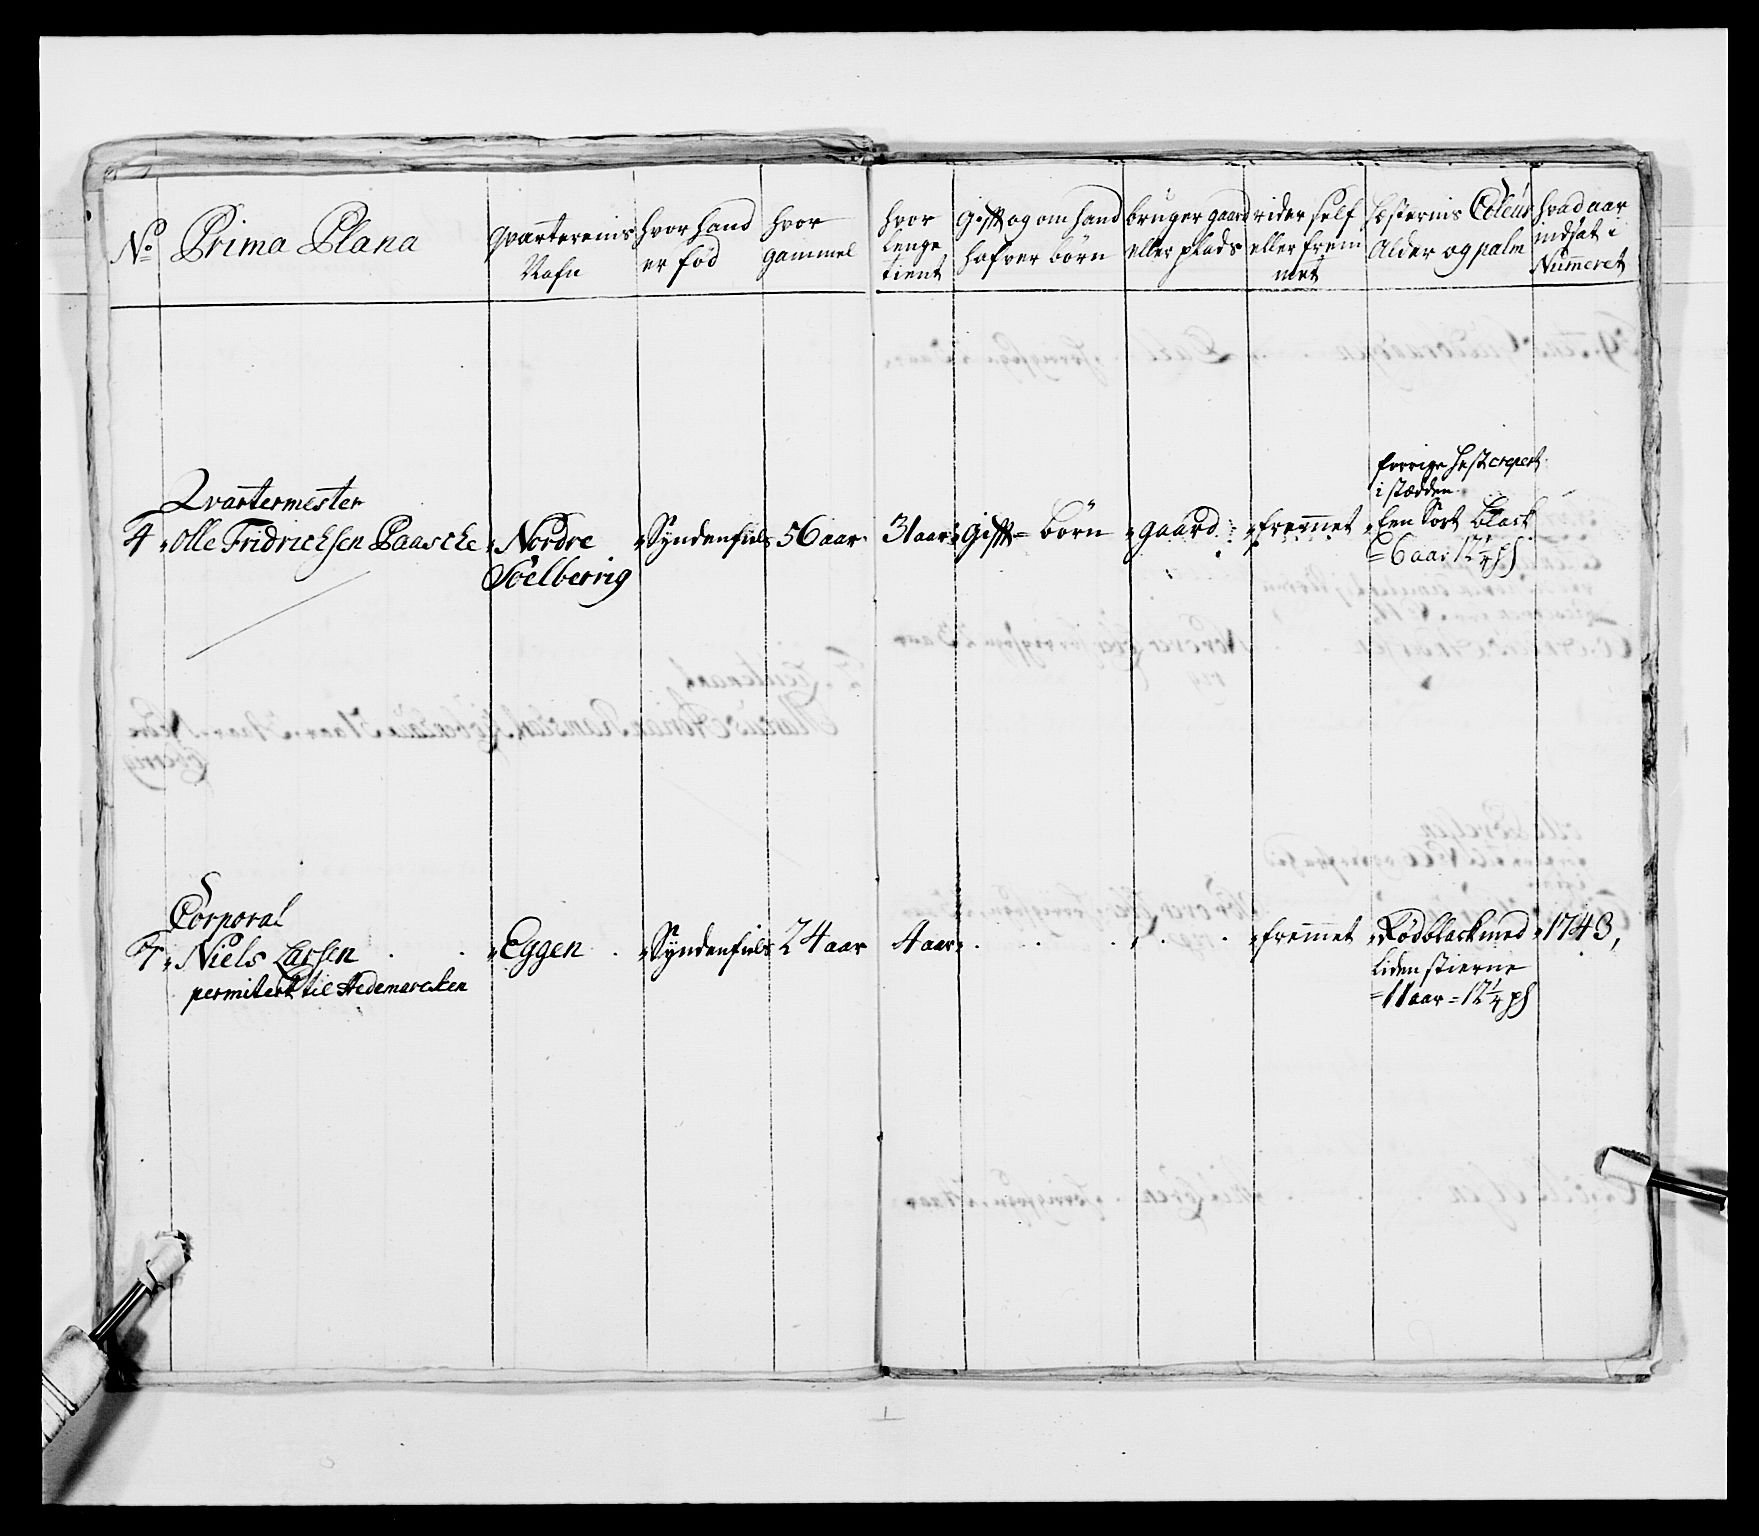 No
Prima Plana
qvartereinis
Nafn
hvor hand
er fød
hvor
gammel
hvor
lenge
tient
Gifft og om hand
hafver børn
bruger gaard
eller plads
rider self
eller frem
met
hæsternis Coleur
Alder og palm
hvad aar
indsat i
Nummeret
Qvartermester
4 Olle Fridrichsen Paasche
Nordre
Soelberrig
Syndenfiels
56 aar
31 aar
Gifft = børn
gaard
fremmet
forrige hest crepert
i stædden
Een Sort black
= 6 aar 12 1/4 ps
Corporal
4 Niels Larsen
permitert til Hedemarcken
Eggen
Syndenfiels
24 aar
4 aar
fremmet
Rødblack med
liden stierne
= 11 aar = 12 1/4 ps
1743,